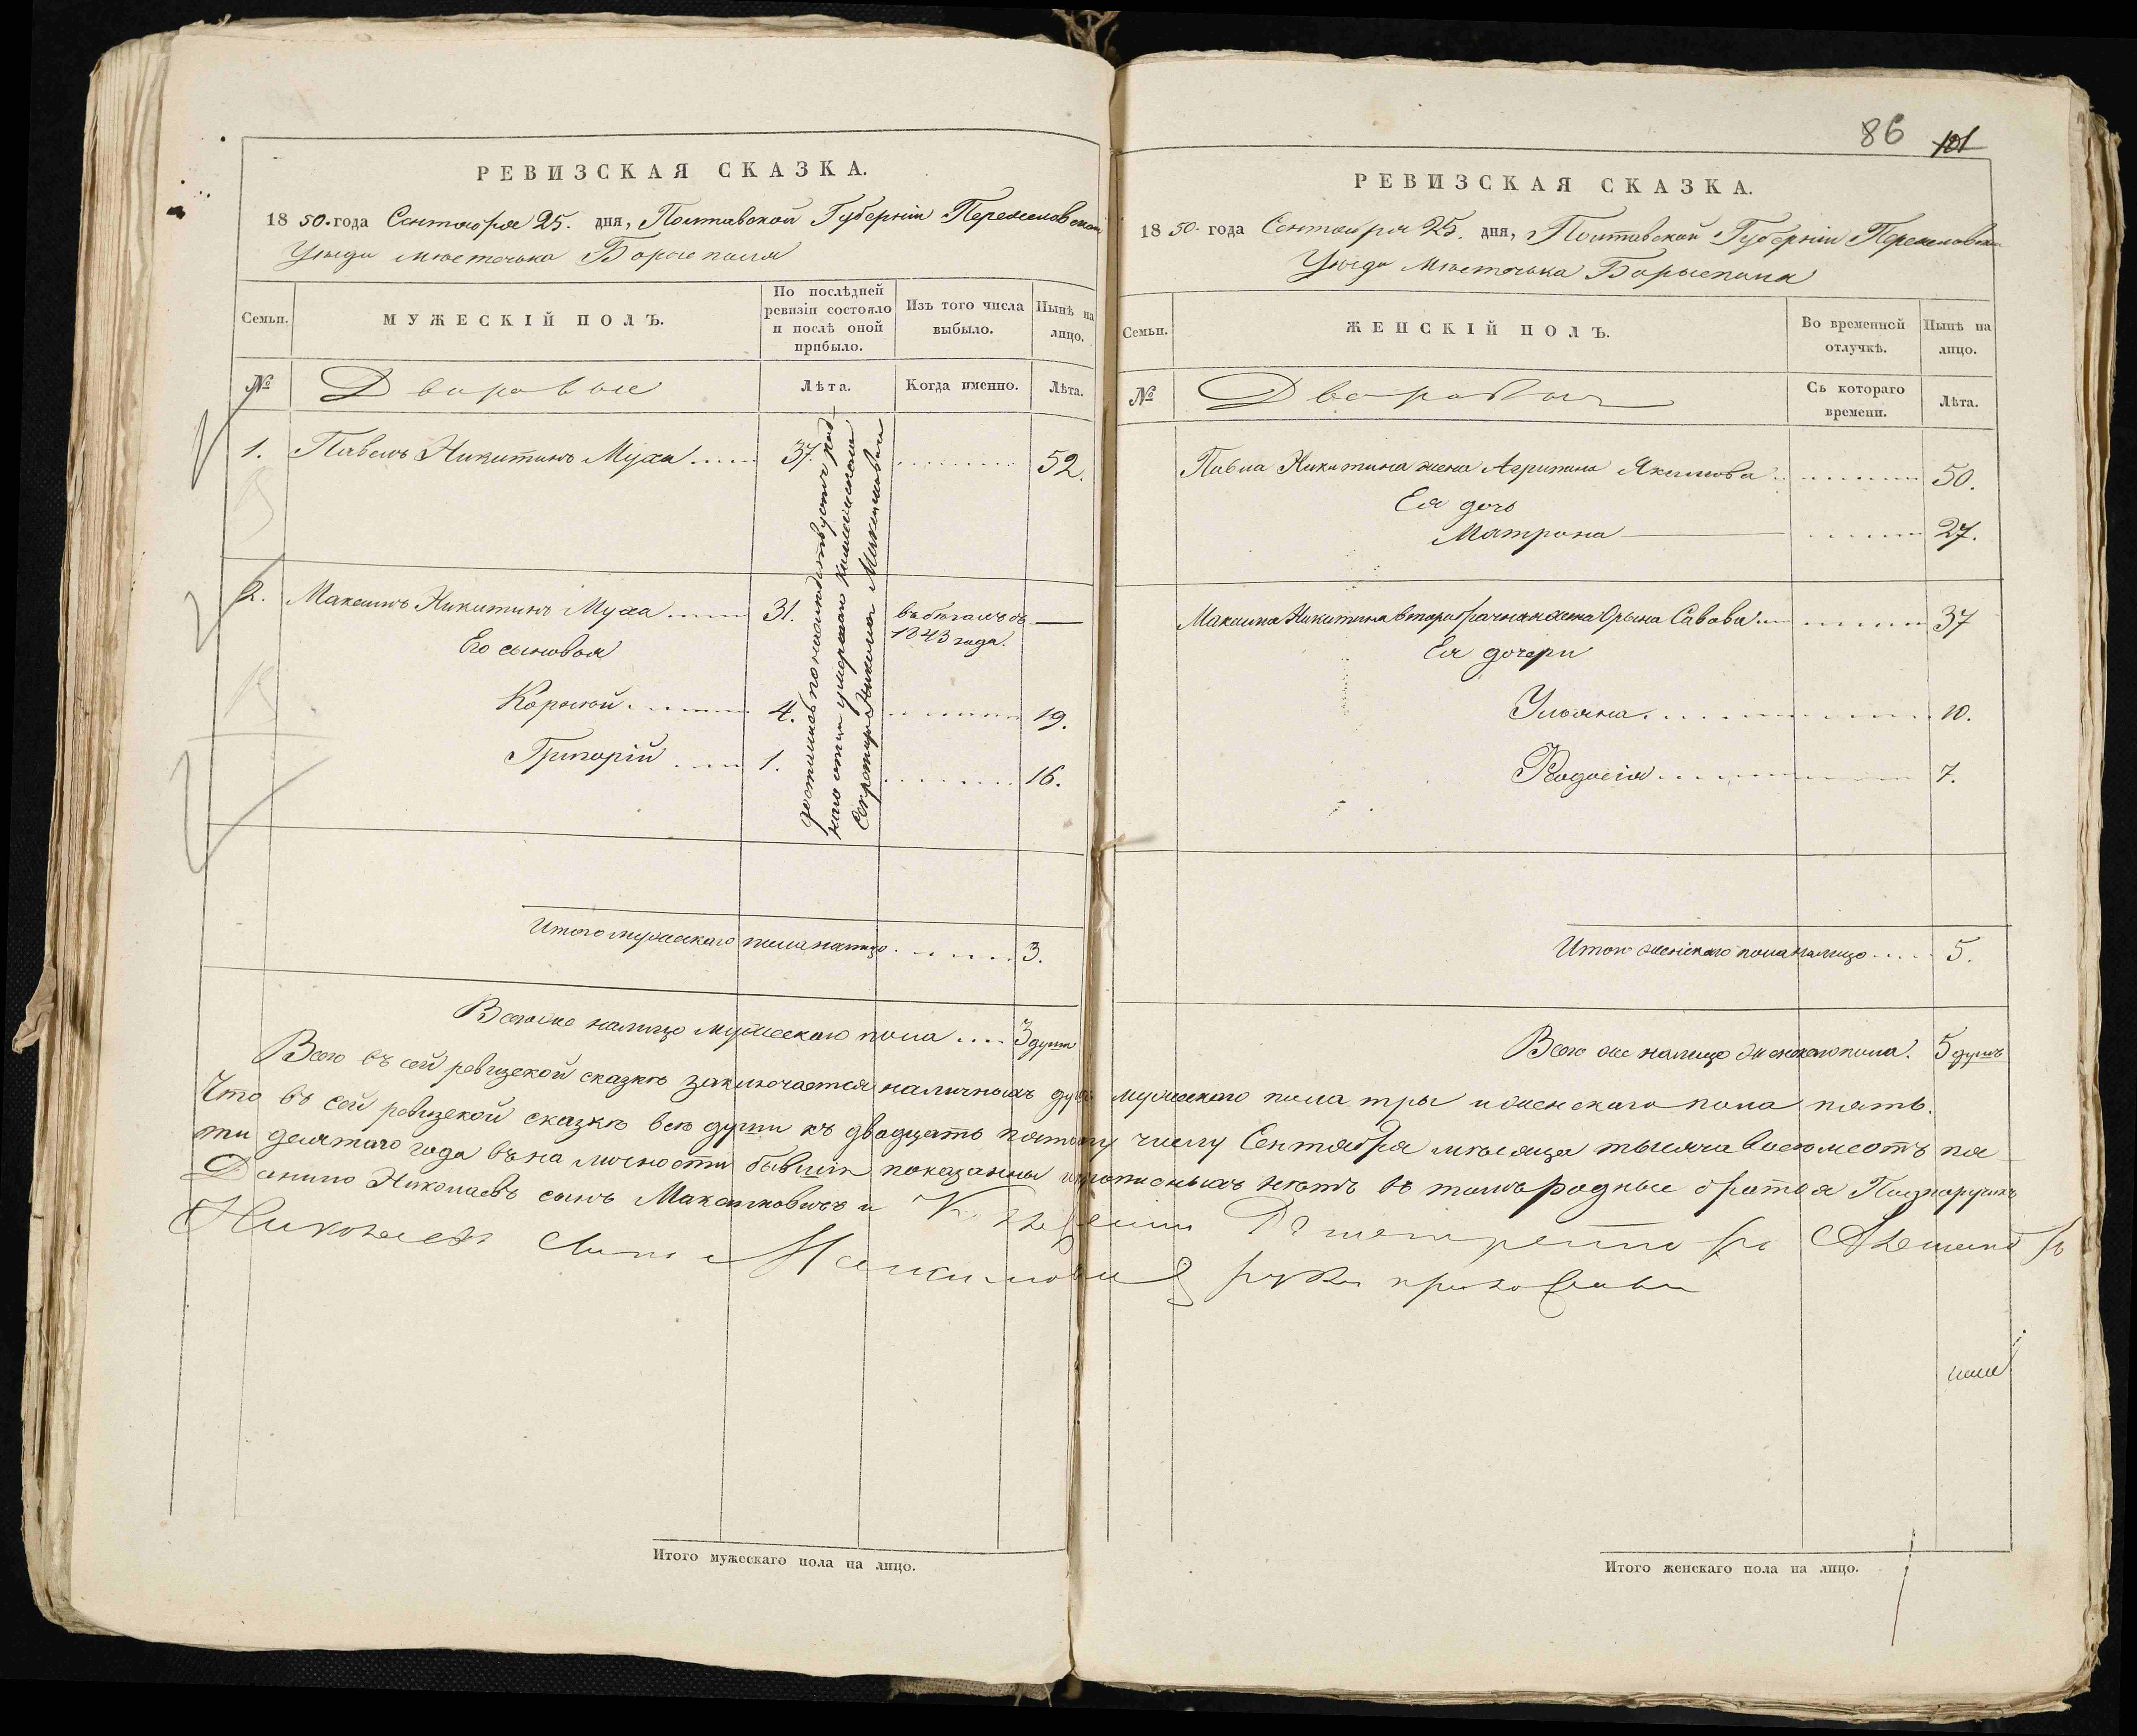 РЕВИЗСКАЯ СКАЗКА.
1850. года Сентября 25. дня, Полтавской Губерніи Переяславскаго
Уѣзда мѣстечка Борысполя
Семьи.
МУЖЕСКІЙ ПОЛЪ.
По послѣдней ревизіи состояло и послѣ оной прибыло.
Изъ того числа выбыло.
Нынѣ на лицо.
№
Дворовые
Лѣта.
Когда именно.
Лѣта.
1. Павелъ Никитинъ Муха 37. 52.
достались по наслѣдству отъ
наго отца умершаго
Секретаря Николая Максимовича
2. Максимъ Никитинъ Муха 31. въ бѣгахъ съ 1843 года.
Его сыновья
Корнѣй 4. 19.
Григорій 1. 16.
Итого мужескаго пола налицо 3.
Всего же налицо мужескаго пола .... 3 душъ
86 101
РЕВИЗСКАЯ СКАЗКА.
1850. года Сентября 25. дня, Полтавской Губерніи Переяславскаго
Уѣзда Мѣстечка Борысполя
Семьи.
ЖЕНСКІЙ ПОЛЪ.
Во временной отлучкѣ.
Нынѣ на лицо.
№
Дворовыя
Съ котораго времени.
Лѣта.
Павла Никитина жена Агрипина Якимова 50.
Ея дочь
Матрона 27.
Максима Никитина второбрачная жена Орына Савова 37
Ея дочери
Ульяна 10.
Ѳеодосія 7.
Итого женскаго пола налицо 5.
Всего же налицо женскаго пола. 5 душъ
Всего въ сей ревизской сказкѣ заключается наличныхъ душъ мужескаго пола тры и женскаго пола пять.
Что въ сей ревизской сказкѣ всѣ души къ двадцать пятому числу Сентября мѣсяца тысяча восемсотъ пя
ти десятаго года въ на личности бывшія показанны и прописныхъ нѣтъ въ томъ родные братья Подпоручикъ
Данило Николаевъ сынъ Максимовичъ и Александръ
Николаевъ Сынъ Максимовичъ руки приложили
Итого мужескаго пола на лицо.
Итого женскаго пола на лицо.